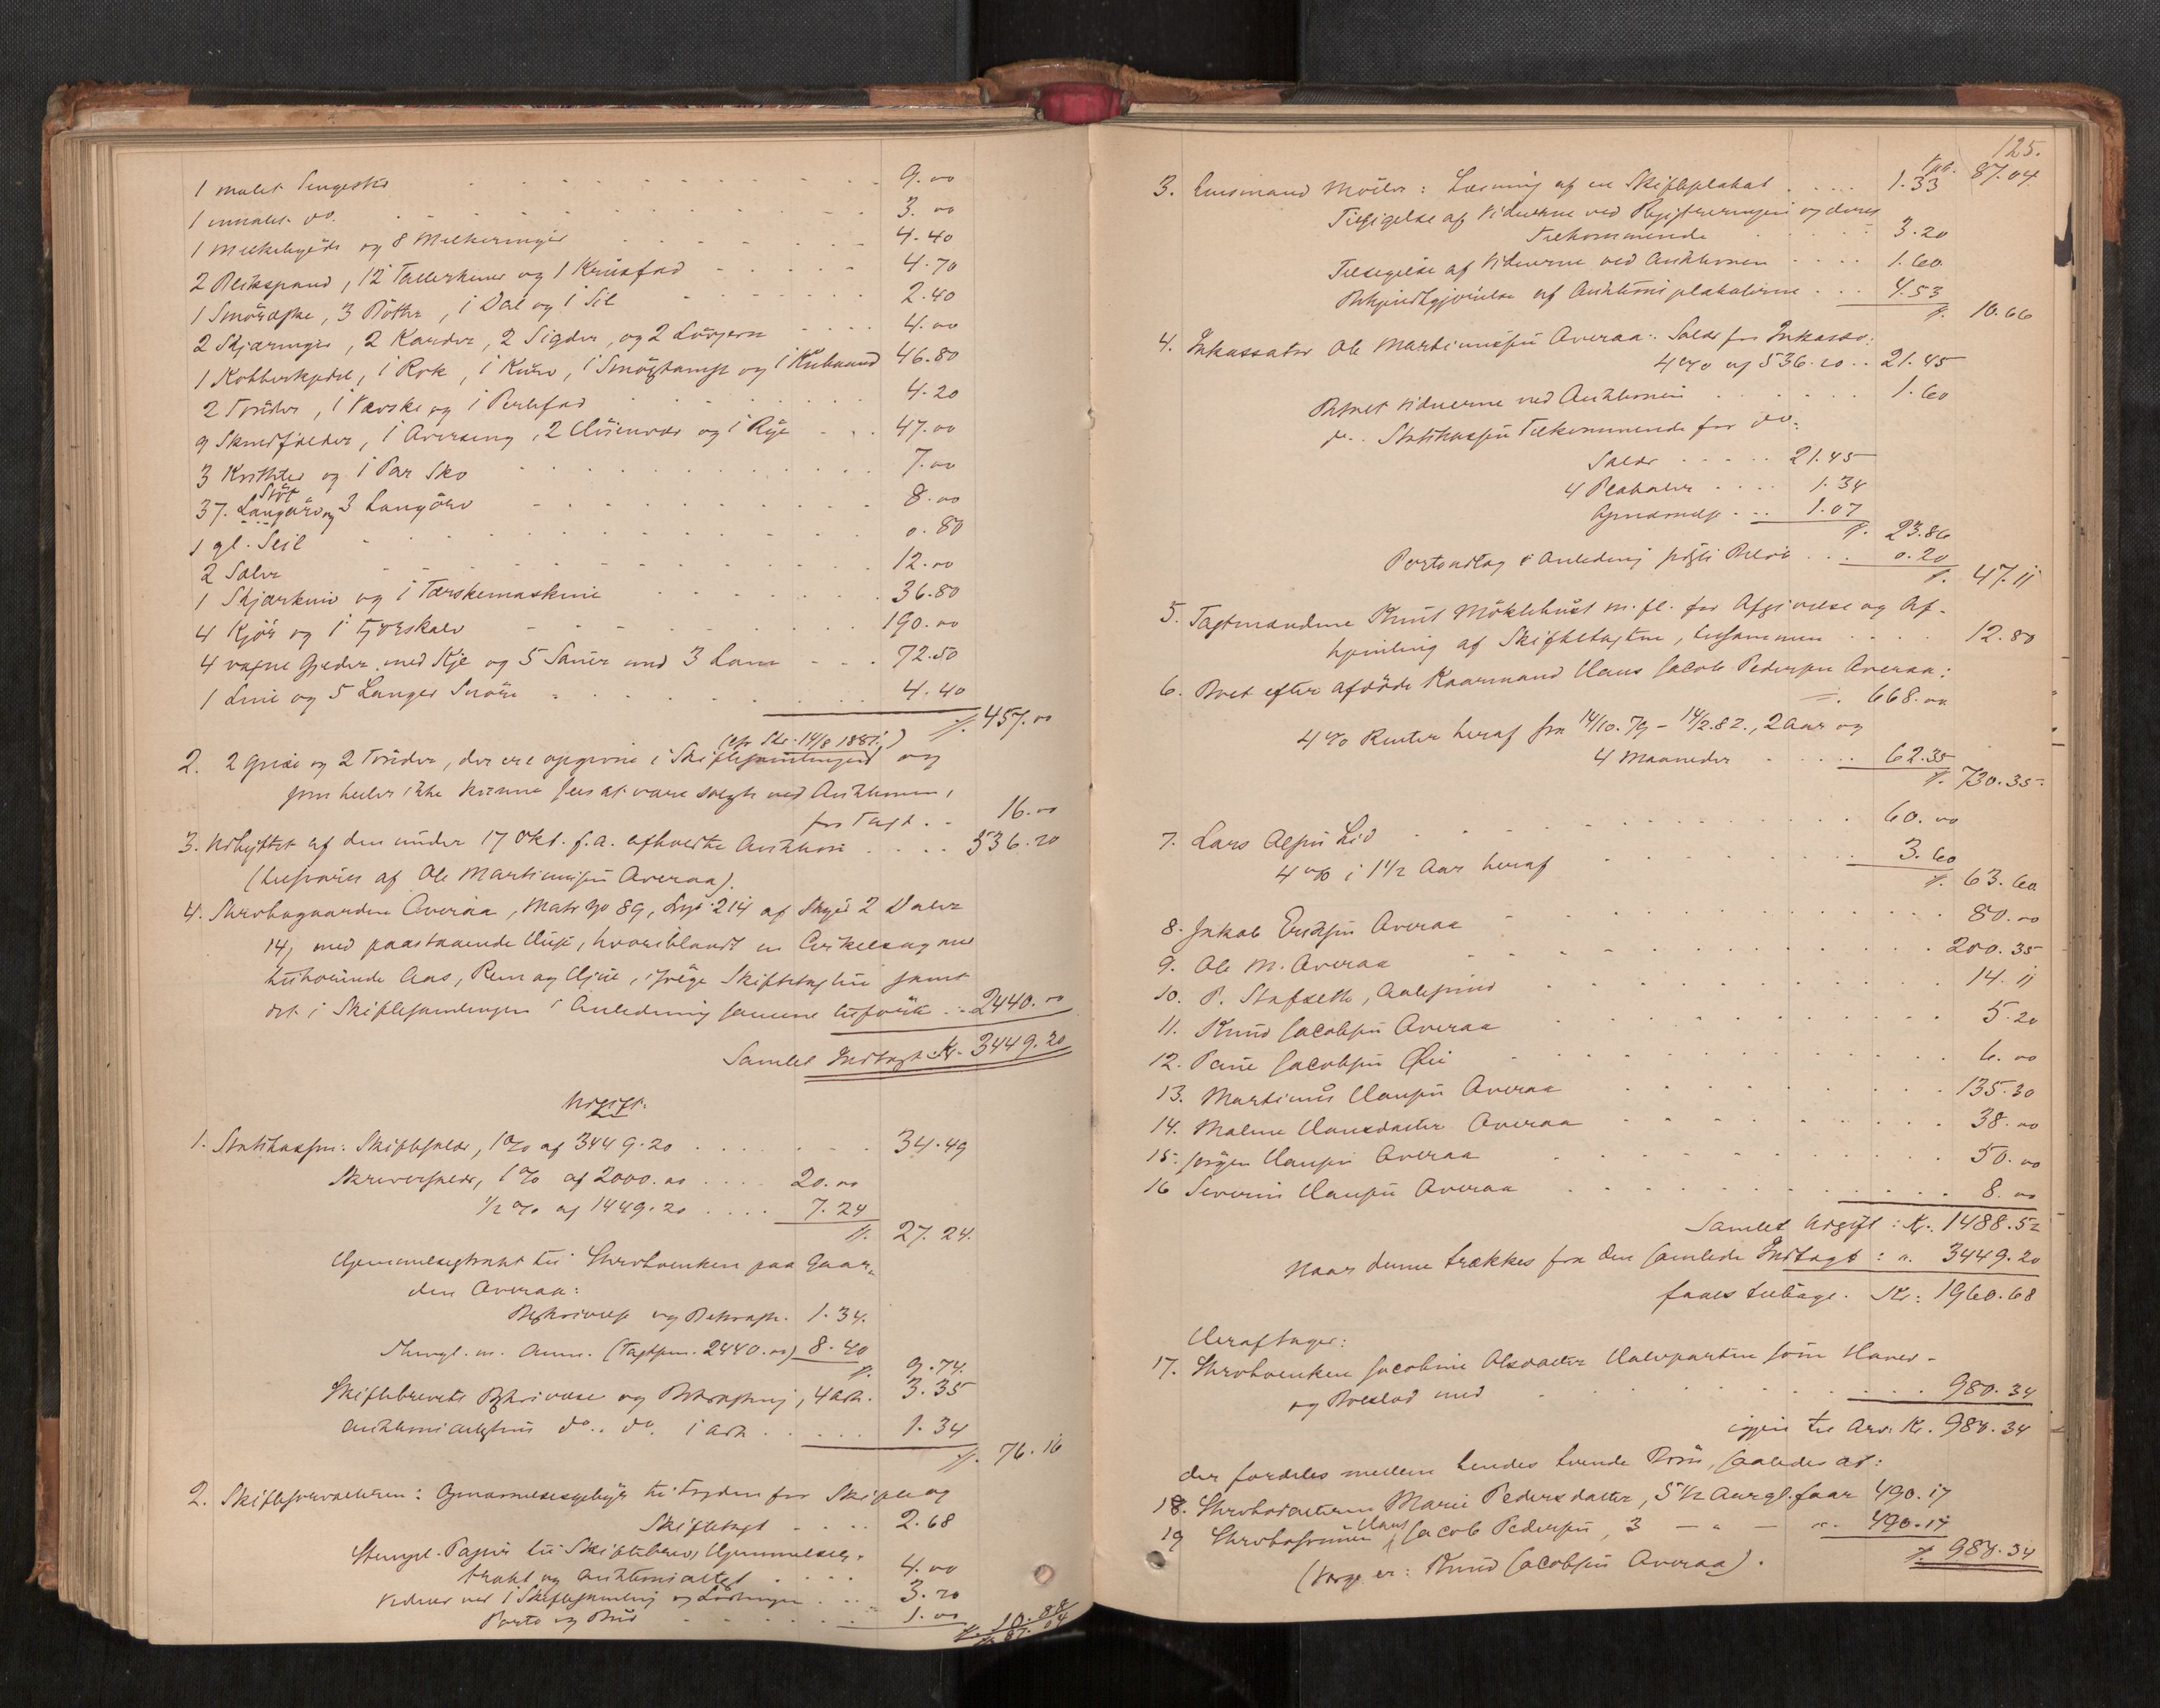 1 malet Sengested 9.00
1 umalet do. 3.00
1 Melkebytte og 8 Melkeringer 4.40
2 Blikspand, 12 Tallerkener og 1 Krusfad 4.70
1 Smöræske, 3 Bötter, 1 Dal og 1 Sil 2.40
2 Skjæringer, 2 Karder, 2 Sigder, og 2 Lövjern 4.00
1 Kobberkjedel, 1 Rok, 1 Kurv, 1 og 1 46.80
2 Tönder, 1 og 1 4.20
9 Skindfelder, 1 Aaresæng, 2 og 1 Rye 47.00
3 Kister og 1 Par Sko 7.00
37. Støt og 3 Langörv 8.00
1 gl. Seil 0.80
2 Saler 12.00
1 Skjærkniv og 1 Tærskemaskine 36.80
4 Kjör og 1 Tyrskalv 190.00
4 vaxne Gjeder med Kje og 5 Sauer med 3 Lam 72.50
1 Line og 5 Langer Snöre 4.40
457.00
(cfr Skr. 14/8 1881.)
2. 2 Grise og 2 Tönder, der ere opgivne i Skiftesamlingen og
som heller ikke kunne sees at være solgte ved Auktionen,
for Taxt 16.00
3. Udbyttet af den under 17 Okt. f.a. afholdte Auktion 536.20
(tilsvares af Ole Martinussen Averaa).
4. Stervbogaarden Averaa, Matr No 89, Lnr 214 af Skyld 2 Daler
14, med paastaaende Huse, hvoriblandt en Cirkelsag med
tilhörende Aas, Rem og Hjul, ifölge Skiftetaxten samt
det i Skiftesamlingen i Anledning samme tilförte 2440.00
Samlet Indtægt Kr. 3449.20
Udgift.
1. Statskassen: Skiftesalær, 1% af 3449.20 34.49
Skriversalær, 1% af 2000.00 20.00
1/2% af 1449.20 7.24
27.24.
Hjemmelsextrakt til Stervboenken paa Gaar-
den Averaa:
Beskrivelse og Bekræft. 1.34.
Thingl. m. Anm. (Taxtsum. 2440.00) 8.40
9.74.
Skiftebrevets Beskrivelse og Bekræftning, 4 Ark. 3.35
Auktionsacten do. do. 1 Ark 1.34
76.16
2. Skifteforvalteren: til Fogden for Skifte og
Skiftetaxt 2.68
Stempl. Papir til Skiftebrev, Hjemmelsex-
trakt og Auktionsactet 4.00
Vidner ved 1 Skiftesamling og Slutningen 3.20
Porto og Bud 1.00
10.88
87.04
125.
87.04
3. Lensmand Möller: Læsning af en Skifteplakat 1.33
Tilsigelse af Vidnerne ved Registreringen og deres
Tilkommende 3.20
Tilsigelse af Vidnerne ved Auktionen 1.60
Bekjendtgjörelse af Auktionsplakaterne 4.53
10.66
4. Inkassator Ole Martinussen Averaa: Salær for Inkasso:
4% af 536.20 21.45
Betalt Vidnerne ved Auktionen 1.60
do. Statskassens Tilkommende for do.
Salær 21.45
4 Plakater 1.34
1.07
23.86
Portoudlæg i Anledning Beløb 0.20
47.11
5. Taxtmændene Knut Möklebust m. fl. for Afgivelse og Af-
hjemling af Skiftetaxten, tilsammen 12.80
6. Boet efter afdöde Kaarmand Hans Jacob Pedersen Averaa:
668.00
4% Renter heraf fra 14/10.79 - 14/2.82., 2 Aar og
4 Maaneder 62.35
730.35
7. Lars Lid 60.00
4% i 1 1/2 Aar heraf 3.60
63.60
8. Jakob Eriksen Averaa 80.00
9. Ole M. Averaa 200.35
10. P. Stafseth, Aalesund 14.11
11. Knud Jacobsen Averaa 5.20
12. Jacobsen Öie 6.00
13. Martinus Hansen Averaa 135.30
14. Malene Hansdatter Averaa 38.00
15. Jörgen Hansen Averaa 50.00
16 Severin Hansen Averaa 8.00
Samlet Udgift: Kr. 1488.52
Naar denne trækkes fra den samlede Indtægt: " 3449.20
faaes tilbage. Kr: 1960.68
Heraf tager:
17. Stervboenken Jacobine Olsdatter Halvparten som Hoved-
og Boeslod med 980.34
igjen til Arv. Kr. 980.34
der fordeles mellem hendes tvende Börn, saaledes at:
18. Stervbodatteren Marie Pedersdatter, 5 1/2 Aar gl. faar 490.17
19 Stervbosönnen Hans Jacob Pedersen, 3 — " — " 490.17
980.34
(Værge er: Knud Jacobsen Averaa).